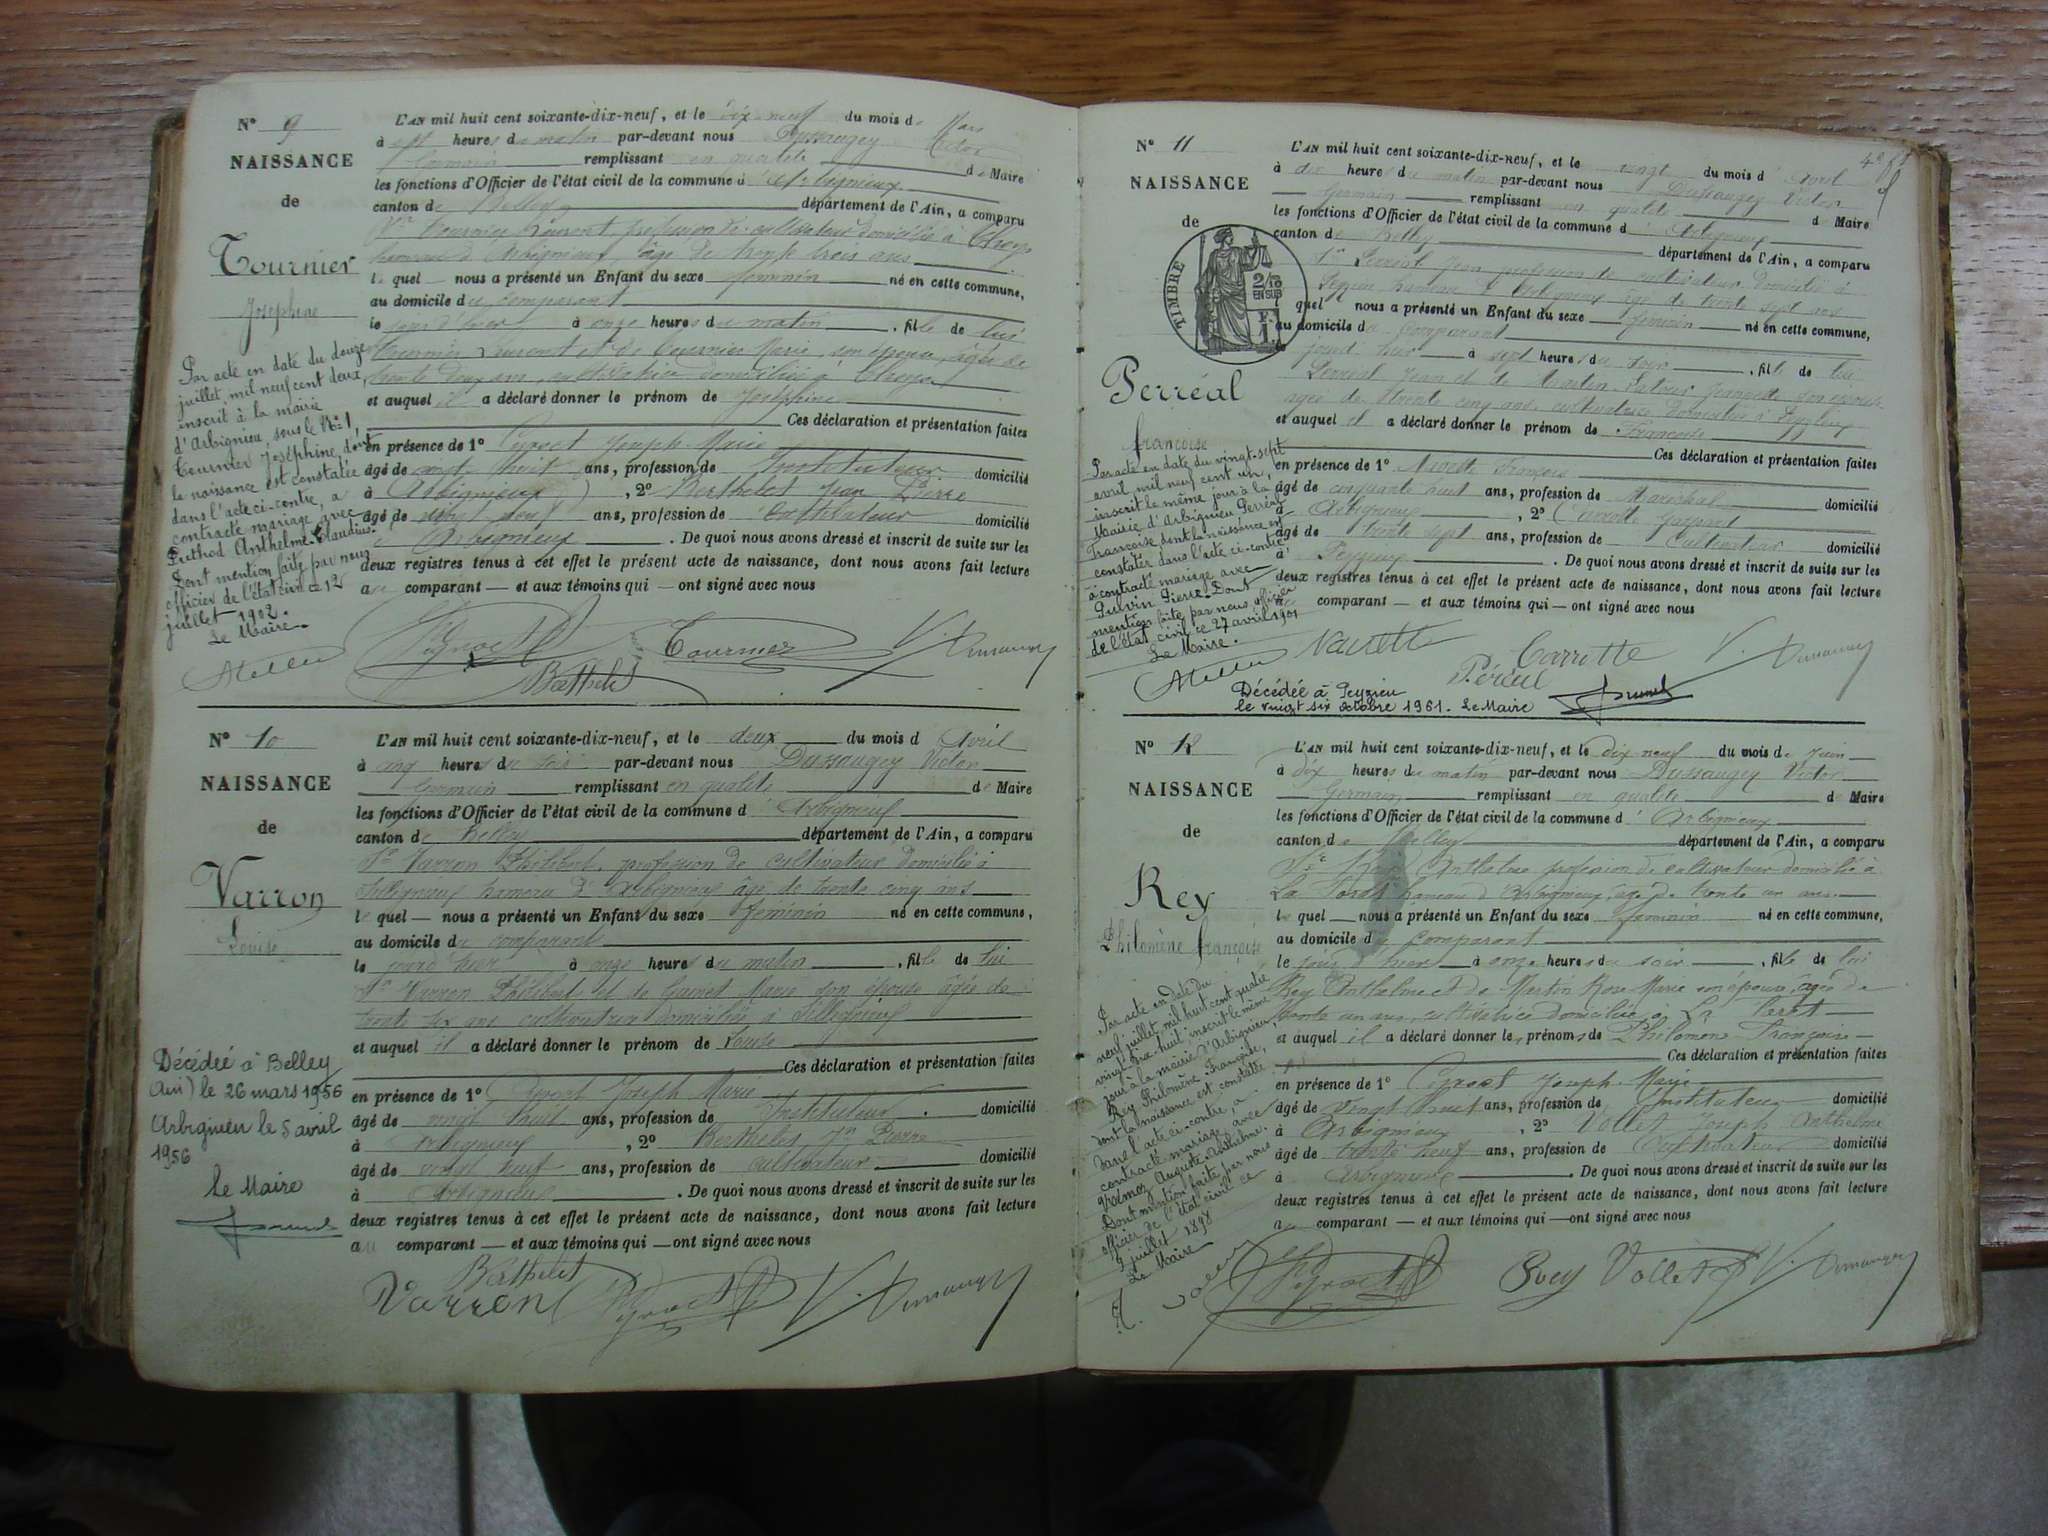 N° 9
NAISSANCE
de
Tournier
Joséphine
Par acte en date du douze
juillet, mil neuf cent deux,
inscrit à la mairie
d'Arbignieu, sous le N° 1,
Tournier Joséphine, dont
la naissance est constatée
dans l'acte ci-contre, a
contracté mariage avec
Puthod Anthelme-Claudius.
Dont mention faite par nous
officier de l'état civil ce 12
juillet 1902.
Le Maire.
L'AN mil huit cent soixante-dix-neuf, et le dix neuf du mois de Mars
à sept heures du matin par-devant nous Dussaugey Victor
Germain remplissant en qualité de Maire
les fonctions d'Officier de l'état civil de la commune d'Arbignieux
canton de Belley département de l'Ain, a comparu
Sr Tournier Laurent profession de cultivateur domicilié à
hameau d'Arbignieux âgé de trente trois ans
le quel nous a présenté un Enfant du sexe féminin né en cette commune,
au domicile du comparant
le jour d'hier à onze heures du matin, fille de lui
Tournier Laurent et de Tournier Marie son épouse âgée de
trente deux ans, cultivatrice domiciliée à
et auquel il a déclaré donner le prénom de Joséphine
Ces déclaration et présentation faites
en présence de 1° Joseph Marie
âgé de vingt huit ans, profession de Instituteur domicilié
à Arbignieux, 2° Berthelet Jean Pierre
âgé de vingt neuf ans, profession de Cultivateur domicilié
à Arbignieux. De quoi nous avons dressé et inscrit de suite sur les
deux registres tenus à cet effet le présent acte de naissance, dont nous avons fait lecture
au comparant — et aux témoins qui — ont signé avec nous
Tournier
Berthelet
N° 10
NAISSANCE
de
Varron
Louise
Décédée à Belley
(Ain) le 26 mars 1956
Arbignieu le 5 avril
1956
Le Maire
L'AN mil huit cent soixante-dix-neuf, et le deux du mois d'Avril
à cinq heures du soir par-devant nous Dussaugey Victor
Germain remplissant en qualité de Maire
les fonctions d'Officier de l'état civil de la commune d'Arbignieux
canton de Belley département de l'Ain, a comparu
Sr Varron Philibert, profession de cultivateur domicilié à
hameau d'Arbignieux âgé de trente cinq ans
le quel — nous a présenté un Enfant du sexe féminin né en cette commune,
au domicile du comparant
le jour d'hier à onze heures du matin, fille de lui
Sr Varron Philibert et de Marie son épouse âgée de
trente six ans cultivatrice domiciliée à
et auquel il a déclaré donner le prénom de Louise
Ces déclaration et présentation faites
en présence de 1° Joseph Marie
âgé de vingt huit ans, profession de Instituteur domicilié
à Arbignieux, 2° Berthelet Jn Pierre
âgé de vingt neuf ans, profession de cultivateur domicilié
à Arbignieux. De quoi nous avons dressé et inscrit de suite sur les
deux registres tenus à cet effet le présent acte de naissance, dont nous avons fait lecture
au comparant — et aux témoins qui — ont signé avec nous
Berthelet
Varron
N° 11
NAISSANCE
de
TIMBRE
2/10
EN SUS
Perréal
françoise
Par acte en date du vingt-sept
avril, mil neuf cent un,
inscrit le même jour à la
Mairie d'Arbignieu Perréal
Françoise dont la naissance est
constatée dans l'acte ci-contre
a contracté mariage avec
Pierre. Dont
mention faite par nous officier
de l'état civil ce 27 avril 1901
Le Maire.
L'AN mil huit cent soixante-dix-neuf, et le vingt du mois d'Avril
à dix heures du matin par-devant nous Dussaugey Victor
Germain remplissant en qualité de Maire
les fonctions d'Officier de l'état civil de la commune d'Arbignieux
canton de Belley département de l'Ain, a comparu
Sr Perréal Jean profession de cultivateur domicilié à
hameau d'Arbignieux âgé de trente sept ans
le quel nous a présenté un Enfant du sexe féminin né en cette commune,
au domicile du comparant
le jour d'hier à sept heures du soir, fille de lui
Perréal Jean et de Martin Jeannette son épouse
âgée de trente cinq ans, cultivatrice domiciliée à
et auquel il a déclaré donner le prénom de Françoise
Ces déclaration et présentation faites
en présence de 1° Navette François
âgé de cinquante huit ans, profession de Maréchal domicilié
à Arbignieux, 2°
âgé de trente sept ans, profession de Cultivateur domicilié
à Peyzieu. De quoi nous avons dressé et inscrit de suite sur les
deux registres tenus à cet effet le présent acte de naissance, dont nous avons fait lecture
au comparant — et aux témoins qui — ont signé avec nous
Navette
Décédée à Peyzieu
le vingt six octobre 1961. Le Maire
N° 12
NAISSANCE
de
Rey
Philomène françoise
Par acte en date du
neuf juillet, mil huit cent quatre
vingt-dix-huit inscrit le même
jour à la mairie d'Arbignieu,
Rey Philomène-Françoise,
dont la naissance est constatée
dans l'acte ci-contre, a
contracté mariage avec
Auguste-Anthelme.
Dont mention faite par nous
officier de l'état civil ce
9 juillet 1898
Le Maire
L'AN mil huit cent soixante-dix-neuf, et le dix neuf du mois de Juin
à dix heures du matin par-devant nous Dussaugey Victor
Germain remplissant en qualité de Maire
les fonctions d'Officier de l'état civil de la commune d'Arbignieux
canton de Belley département de l'Ain, a comparu
Sr Rey Anthelme profession de cultivateur domicilié à
La hameau d'Arbignieux, âgé de trente un ans
le quel — nous a présenté un Enfant du sexe féminin né en cette commune,
au domicile du comparant
le jour d'hier à onze heures du soir, fille de lui
Rey Anthelme et de Martin Rose Marie son épouse, âgée de
trente un ans, cultivatrice domiciliée à La
et auquel il a déclaré donner les prénoms de Philomène Françoise
Ces déclaration et présentation faites
en présence de 1° Joseph Marie
âgé de vingt huit ans, profession de Instituteur domicilié
à Arbignieux, 2° Vollet Joseph Anthelme
âgé de trente neuf ans, profession de Cultivateur domicilié
à Arbignieux. De quoi nous avons dressé et inscrit de suite sur les
deux registres tenus à cet effet le présent acte de naissance, dont nous avons fait lecture
au comparant — et aux témoins qui — ont signé avec nous
Rey Vollet